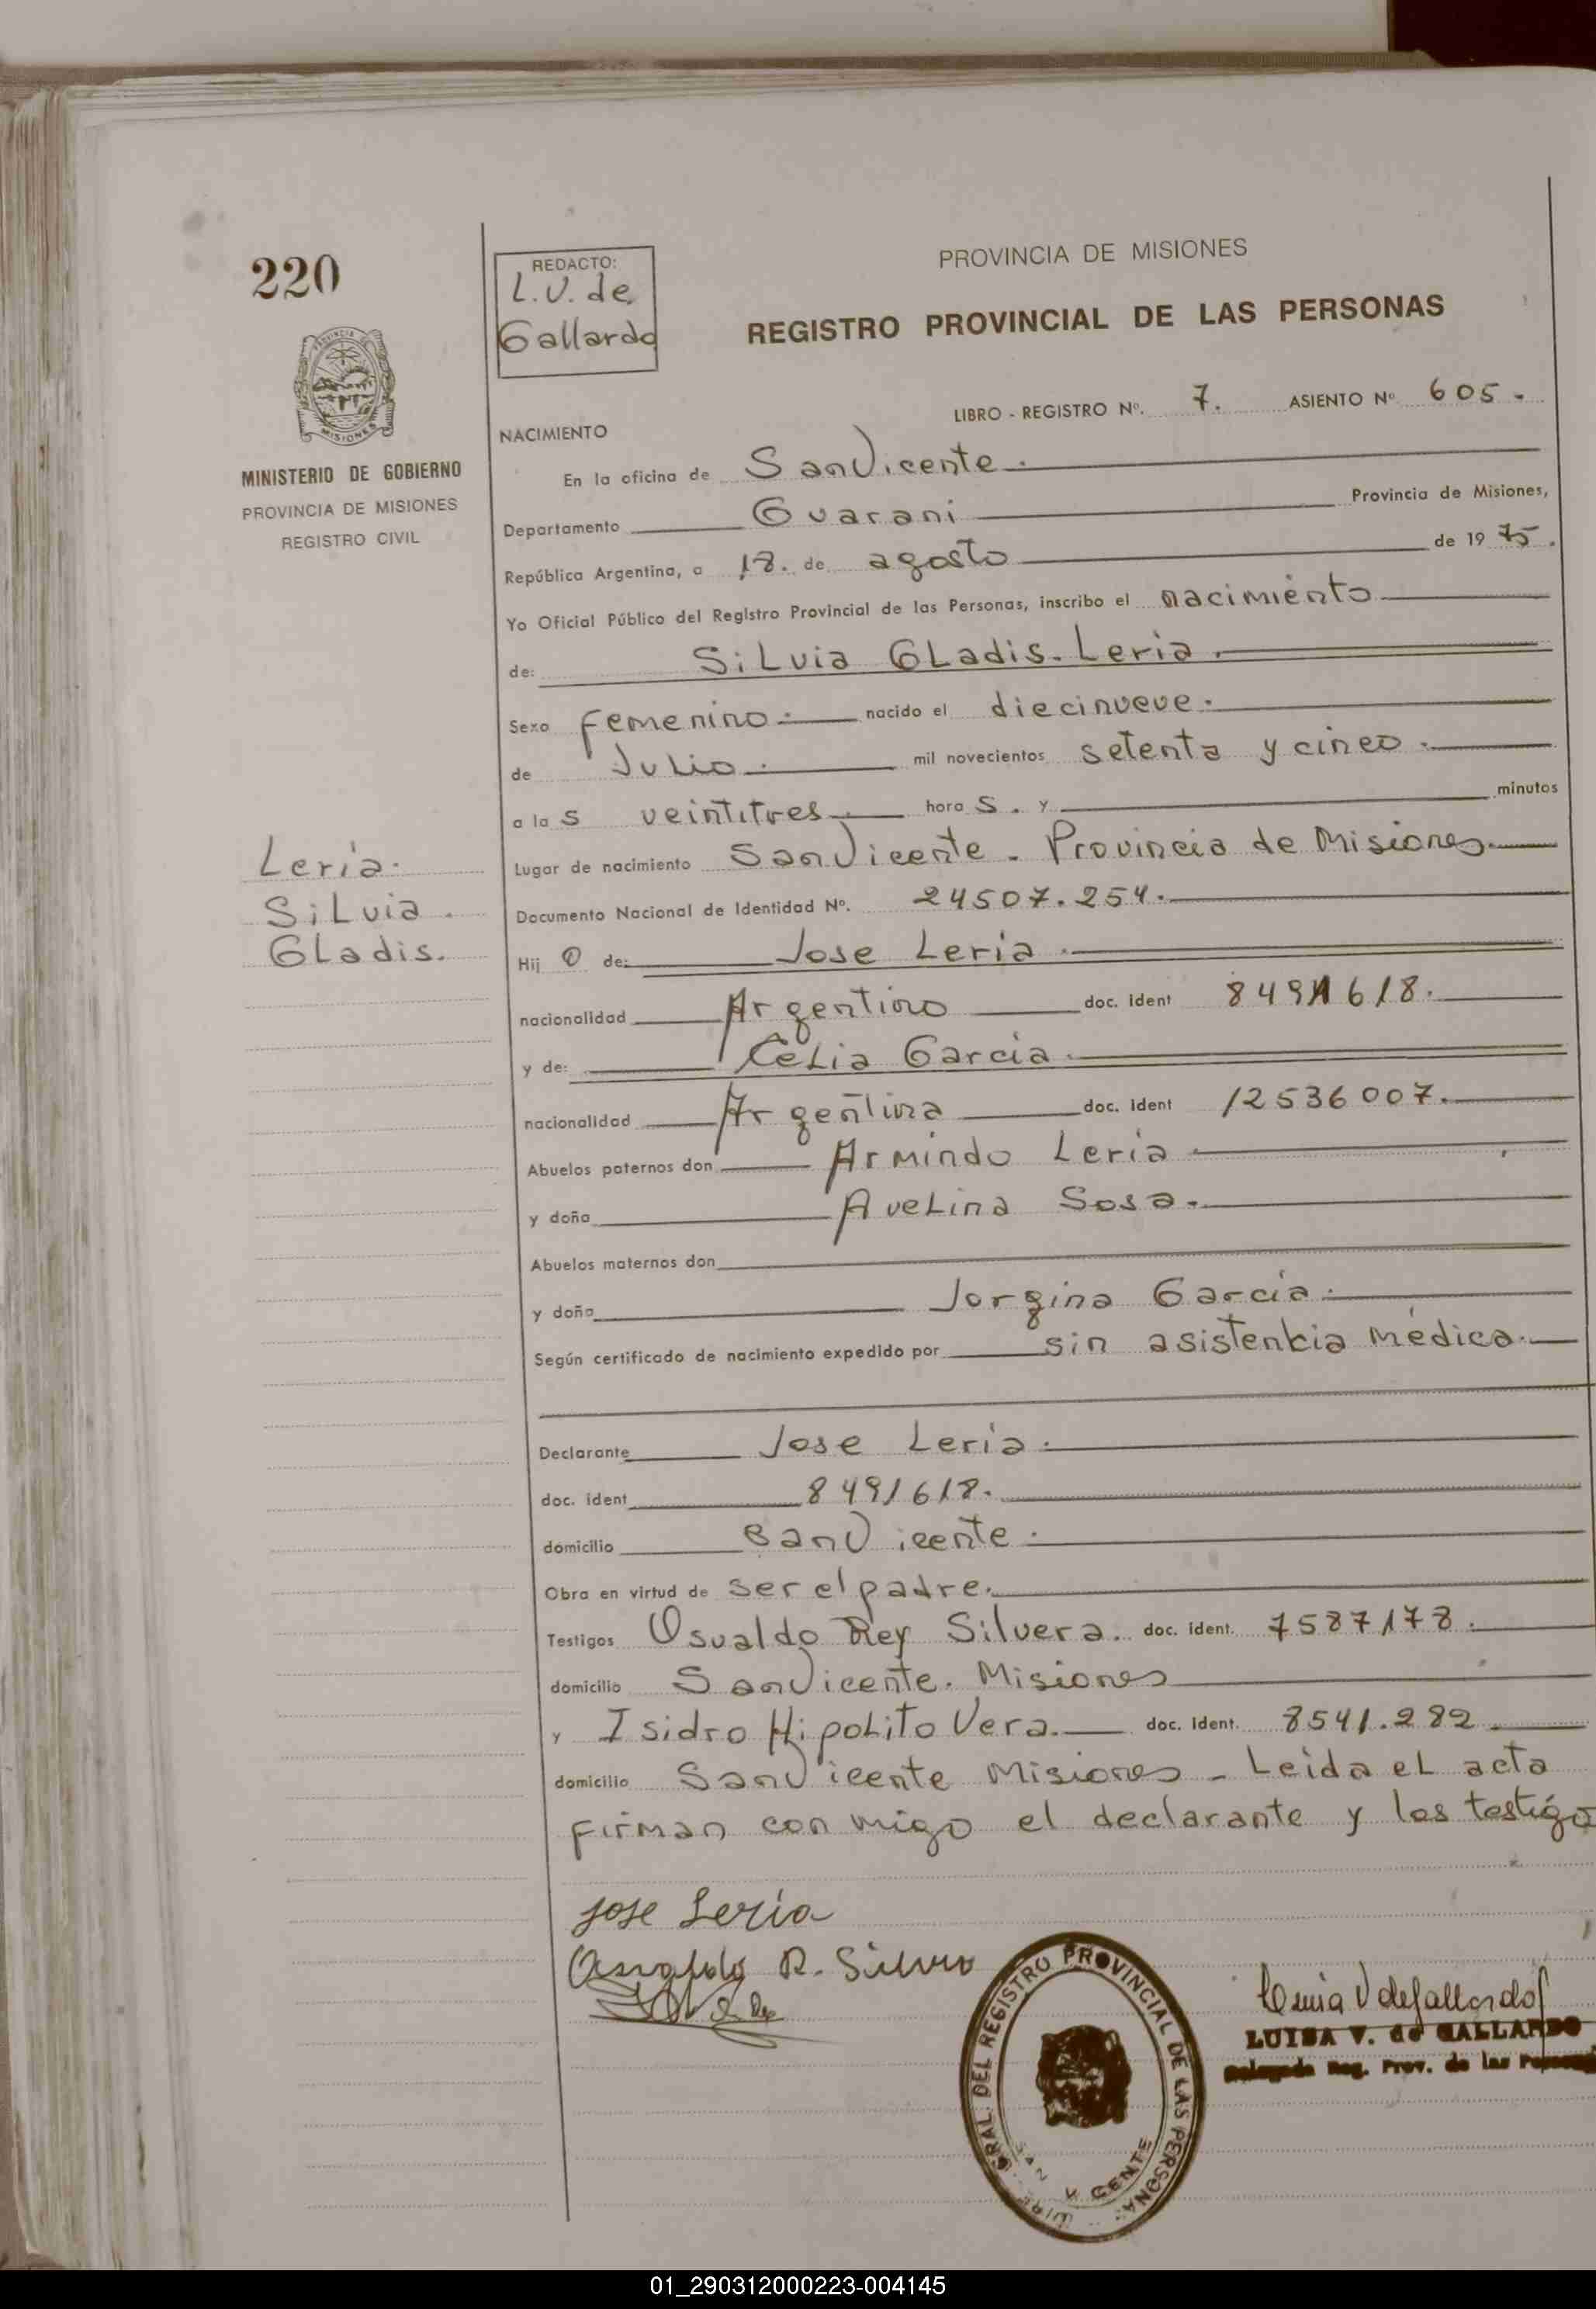 220
REDACTO:
L.V. de
Gallardo
PROVINCIA DE MISIONES
REGISTRO PROVINCIAL DE LAS PERSONAS
MINISTERIO DE GOBIERNO
PROVINCIA DE MISIONES
REGISTRO CIVIL
LIBRO - REGISTRO Nº. 7. ASIENTO Nº 605.
NACIMIENTO
En la oficina de San Vicente.
Departamento Guarani Provincia de Misiones,
República Argentina, a 18. de agosto de 1975.
Yo Oficial Público del Registro Provincial de las Personas, inscribo el nacimiento
de: Silvia Gladis. Leria.
Sexo femenino. nacido el diecinueve.
de Julio. mil novecientos setenta y cinco.
a la s veintitres. hora s. y minutos
Lugar de nacimiento San Vicente. Provincia de Misiones.
Documento Nacional de Identidad Nº. 24507.254.
Leria.
Silvia.
Gladis.
Hij o de: Jose Leria.
nacionalidad Argentino doc. ident 8491618.
y de: Celia Garcia.
nacionalidad Argentina doc. ident 12536007.
Abuelos paternos don Armindo Leria
y doña Avelina Sosa.
Abuelos maternos don
y doña Jorgina Garcia.
Según certificado de nacimiento expedido por sin asistencia médica.
Declarante Jose Leria.
doc. ident 8491618.
domicilio San Vicente.
Obra en virtud de ser el padre.
Testigos Osvaldo Rey Silvera. doc. ident. 7587178.
domicilio San Vicente. Misiones
y Isidro Hipolito Vera. doc. ident. 8541.282
domicilio San Vicente Misiones - Leida el acta
firman con migo el declarante y los testigo
Jose Leria
Osvaldo R. Silvera
GRAL. DEL REGISTRO PROVINCIAL DE LAS PERSONAS
SAN VICENTE
Luisa V de Gallardo
LUISA V. de GALLARDO
Delegada Reg. Prov. de las Personas
01_290312000223-004145